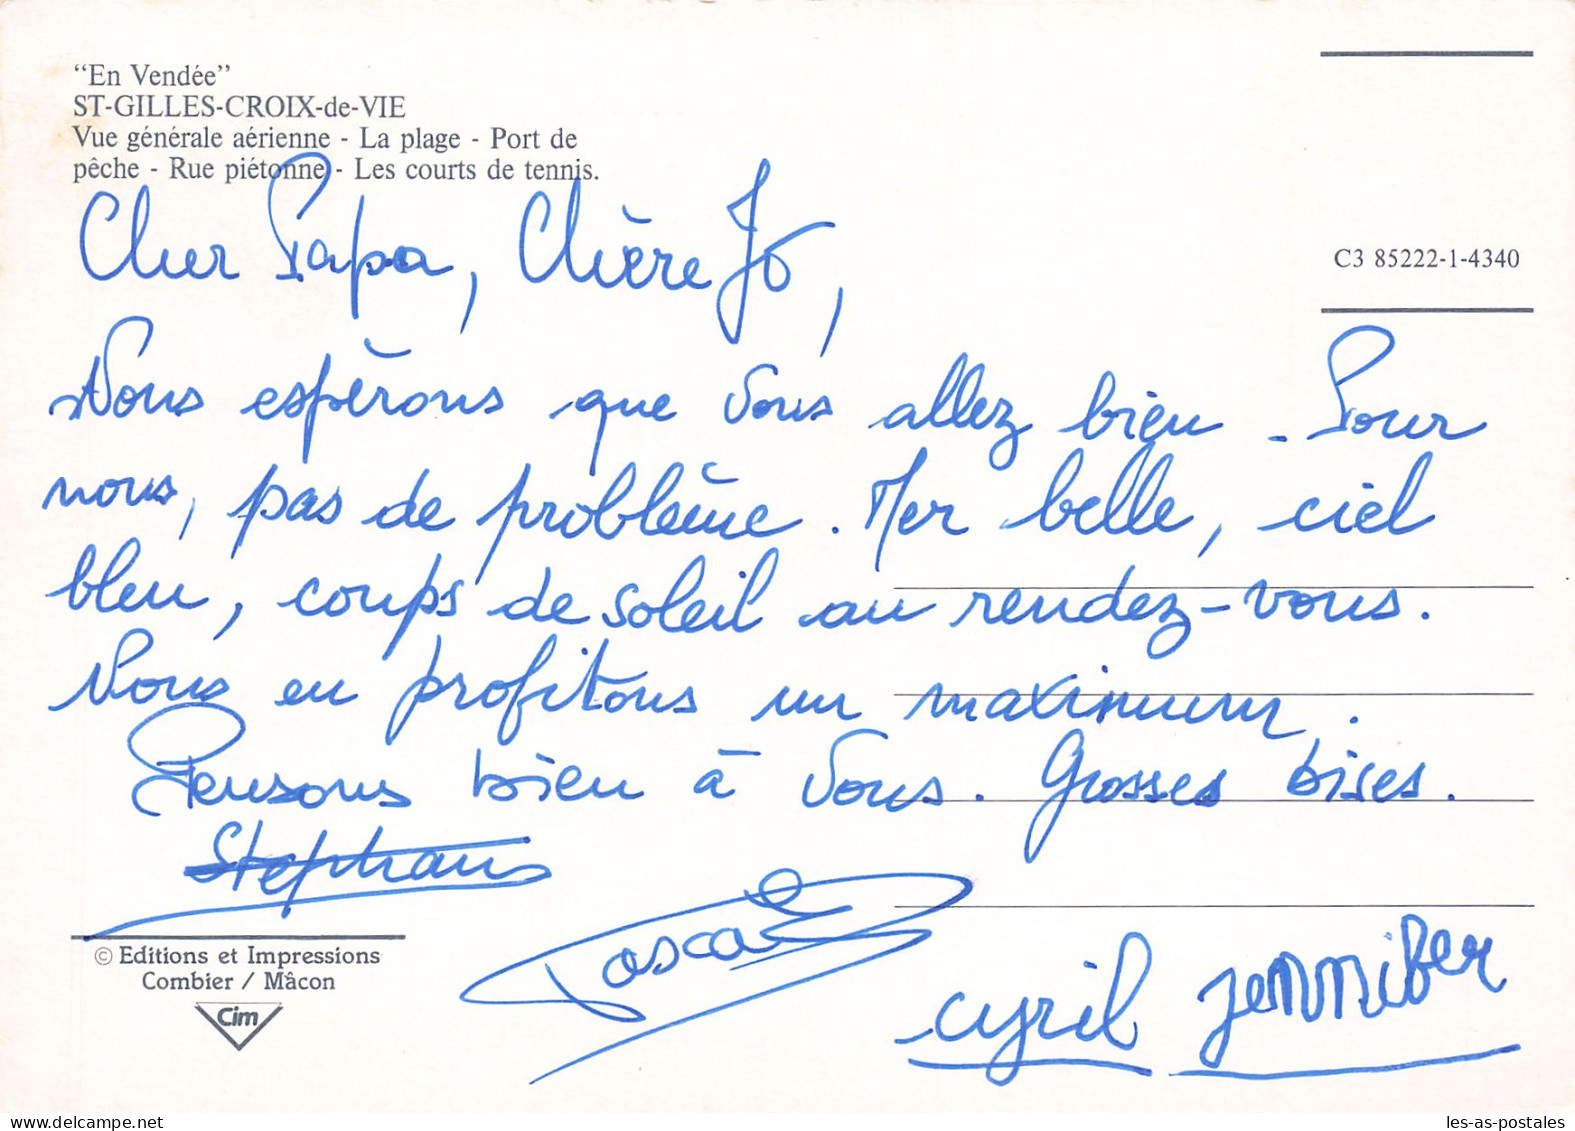 “En Vendée”
ST-GILLES-CROIX-de-VIE
Vue générale aérienne - La plage - Port de
pêche - Rue piétonne - Les courts de tennis.
C3 85222-1-4340
Cher Papa, Chère Jo,
Nous espèrons que vous allez bien. Pour
nous, pas de problème. Mer belle, ciel
bleu, coups de soleil au rendez-vous.
Nous en profitons un maximum.
Pensons bien à vous. Grosses bises.
Pascal
cyril jennifer
© Editions et Impressions
Combier / Mâcon
Cim
www.delcampe.net
les-as-postales